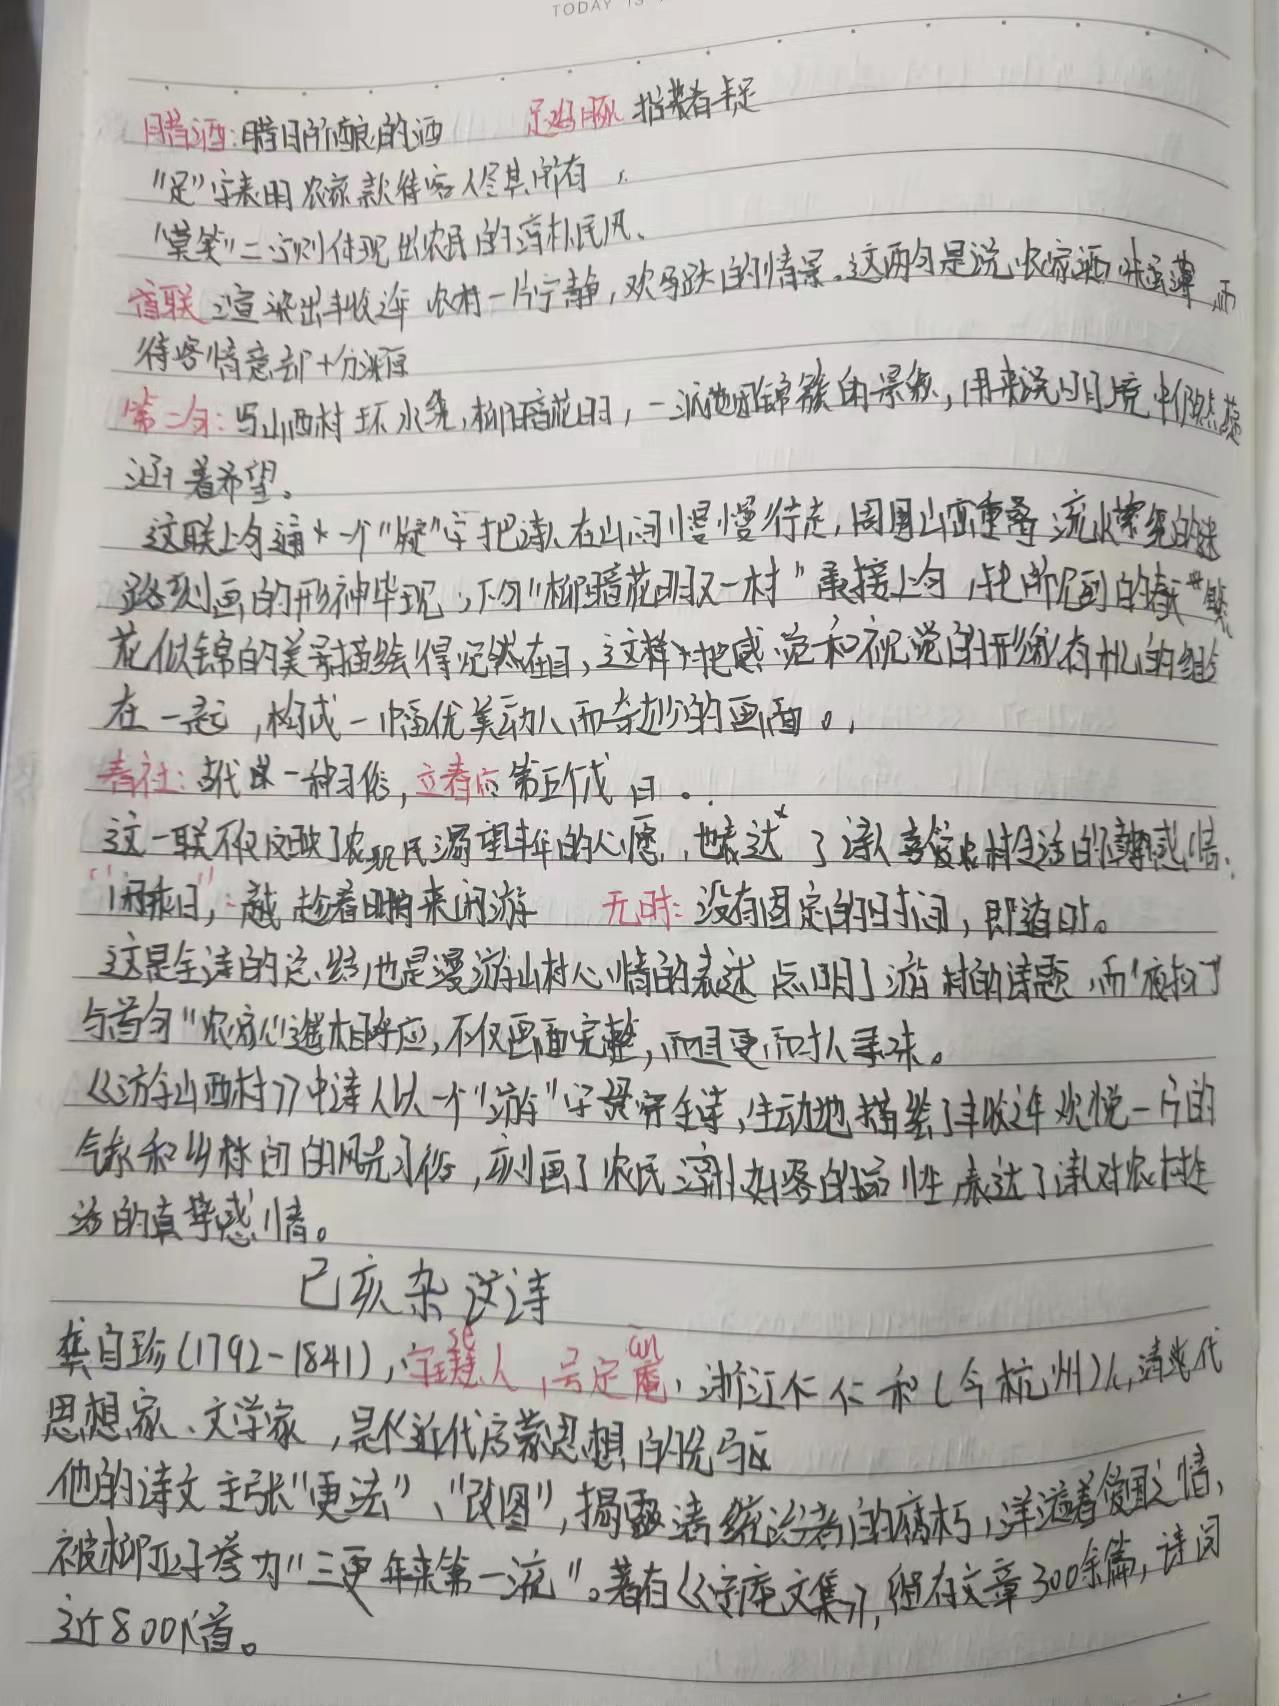 TODAY IS
腊酒:腊日所酿的酒 足鸡豚 指装着丰足
“足”字表明农家款待客人尽其所有,
“莫笑”二字则体现出农民的淳朴民风、
首联渲染出丰收之年农村一片宁静,欢乐跃的情景。这两句是说农家酒味虽薄,而
待客情意却十分深厚
第二句:写山西村环水绕,柳暗花明,一派花团锦簇的景象,用来说明困境中仍然蕴
涵着希望。
这联上句通 一个“疑”字把诗人在山间慢慢行走,周围山峦重叠流水萦绕的迷
路刻画的形神毕现,下句“柳暗花明又一村”承接上句,把所见到的春天 繁
花似锦的美景描绘得宛然在目,这样 把感觉和视觉的形象有机的组合
在一起,构成一幅优美动人而奇妙的画面。,
春社:古代 一种习俗,立春后第五个戊日。.
这一联不仅反映了农 民渴望丰年的心愿,也表达了诗人喜爱农村生活的 感情,
“闲乘月”: 趁着明月来闲游 无时:没有固定的时间,即随时。
这是全诗的总结,也是漫游山村心情的表述点明了游村的诗题,而“夜扣门”
与首句“农家 ”遥相呼应,不仅画面完整,而且更 耐人寻味。
《游山西村》中诗人以一个“游”字贯穿全诗,生动地描绘了丰收之年欢悦一片的
气象和乡村 的风光习俗,刻画了农民淳朴好客的品性,表达了诗人对农村生
活的真挚感情。
己亥杂 诗
sè ān
龚自珍(1792-1841),字璱人,号定庵,浙江仁 和(今杭州)人,清 代
思想家、文学家,是 近代启蒙思想的先驱
他的诗文主张“更法”、“改图”,揭露清统治者的腐朽,洋溢着爱国之情,
被柳亚子誉为“三百年来第一流”。著有《定庵文集》,留存文章300余篇,诗词
近800 首。